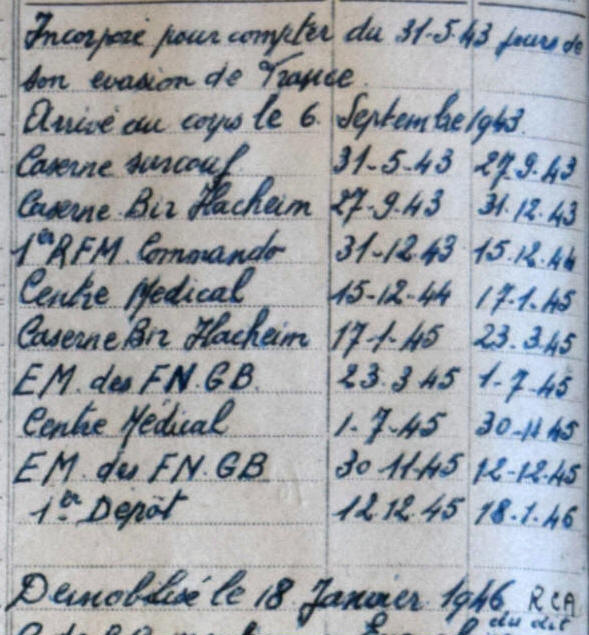 Incorporé pour compter du 31-5-43 jours de
son evasion de France
Arrivé au corps le 6. Septembre 1943.
Caserne surcouf 31-5-43 27.9.43
Caserne Bir Hacheim 27-9.43 31.12.43
1er RFM Commando 31-12.43 15.12.44
Centre Medical 15-12-44 17-1.45
Caserne Bir Hacheim 17-1-45 23.3.45
EM. des FN.GB. 23.3.45 1-7-45
Centre Médical 1-7-45 30-11 45
EM. des FN.GB 30 11-45 12-12-45
1er Dépôt 12.12.45 18-1.46
Demobilisé le 18 Janvier 1946 RCA
du dit